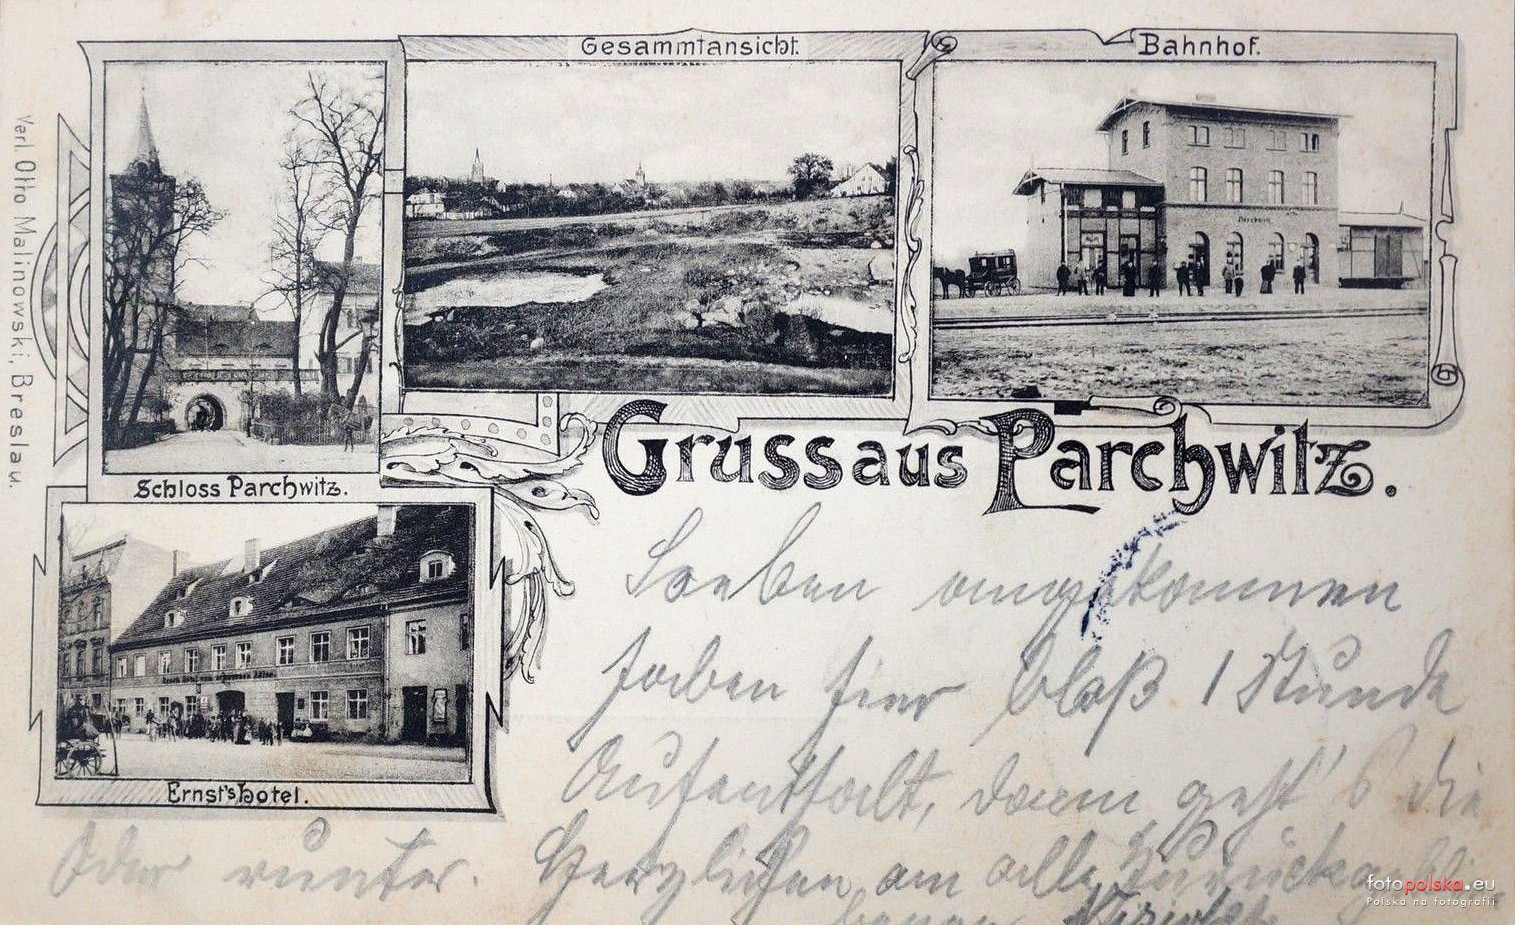 Gesammtansicht.
Bahnhof.
Verl. Otto Malinowski, Breslau.
Schloss Parchwitz.
Gruss aus Parchwitz.
Ernst's Hotel.
Soeben angekommen
haben hier bloß 1 Stunde
Aufenthalt, dann geht's die
Oder runter. Herzlichen an alle Zurückgeblie
benen
fotopolska.eu
Polska na fotografii